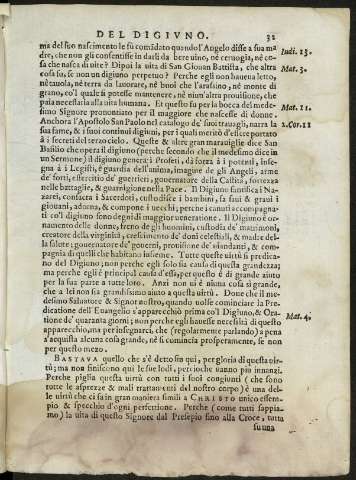 DEL DIGIUNO. 32
ma del suo nascimento le fu comādato quando l'Angelo disse a sua ma
dre, che non gli consentisse in darli da bere uino, nè ceruogia, nè co-
sa che nasca di uite? Dipoi la uita di San Giouan Battista, che altra
cosa fu, se non un digiuno perpetuo? Perche egli non haueua letto,
nè tauola, nè terra da lauorare, nè buoi che l'arassino, nè monte di
grano, co'l quale si potesse mantenere, nè nium'altra prouisione, che
paia necessaria alla uita humana. Et questo fu per la bocca del mede-
simo Signore pronontiato per il maggiore che nascesse di donne.
Anchora l'Apostolo San Paolo nel catalogo de' suoi trauagli, narra la
sua fame, & i suoi continui digiuni, per i quali meritò d'essere portato
à i secreti del terzo cielo. Queste & altre gran marauiglie dice San
Basilio che opera il digiuno (perche secondo che il medesimo dice in
un Sermone) il digiuno genera i Profeti, dà forza à i potenti, inse-
gna à i Legisti, è guardia dell'anima, imagine de gli Angeli, arme
de' forti, essercitio de' guerrieri, gouernatore della Castità, fortezza
nelle battaglie, & guarnigione nella Pace. Il Digiuno santifica i Na-
zarei, consacra i Sacerdoti, custodisce i bambini, fa saui & graui i
giouani, adorna, & compone i uecchi; perche i canuti accompagna-
ti co'l digiuno sono degni di maggior ueneratione. Il Digiuno è or-
namento delle donne, freno de gli huomini, custodia de' matrimoni,
creatore della virginità, crescimento de' doni celestiali, & madre del-
la salute; gouernatore de' gouerni, prouisione de' uiandanti, & com-
pagnia di quelli che habitano insieme. Tutte queste uirtù si predica-
no del Digiuno; non perche egli solo sia causa di questa grandezza;
ma perche egli è principal causa d'essi, per questo è di grande aiuto
per la sua parte a tutte loro. Anzi non ui è niuna cosa sì grande,
che a lei non sia grandissimo aiuto a questa uirtù. Donde che il me-
desimo Saluatore & Signor nostro, quando uolse cominciare la Pre-
dicatione dell'Euangelio s'apparecchiò prima co'l Digiuno, & Ora-
tione de' quaranta giorni; non perche egli hauesse necessità di questo
apparecchio, ma per insegnarci, che (regolarmente parlando) a pena
s'acquista alcuna cosa grande, nè si comincia prosperamente, se non
per questo mezo.
BASTAVA quello che s'è detto sin qui, per gloria di questa uir-
tù; ma non finiscono quì le sue lodi, percioche uanno più innanzi.
Perche piglia questa uirtù con tutti i suoi congiunti (che sono
tutte le asprezze & mali trattamenti del nostro corpo) è una del-
le uirtù che ci fa in gran maniera simili a CHRISTO unico essem-
pio & specchio d'ogni perfettione. Perche (come tutti sappia-
mo) la uita di questo Signore dal Presepio sino alla Croce, tutta
fu una
Iudi. 13.
Mat. 3.
Mat. 11.
2. Cor. 11
Mat. 4.